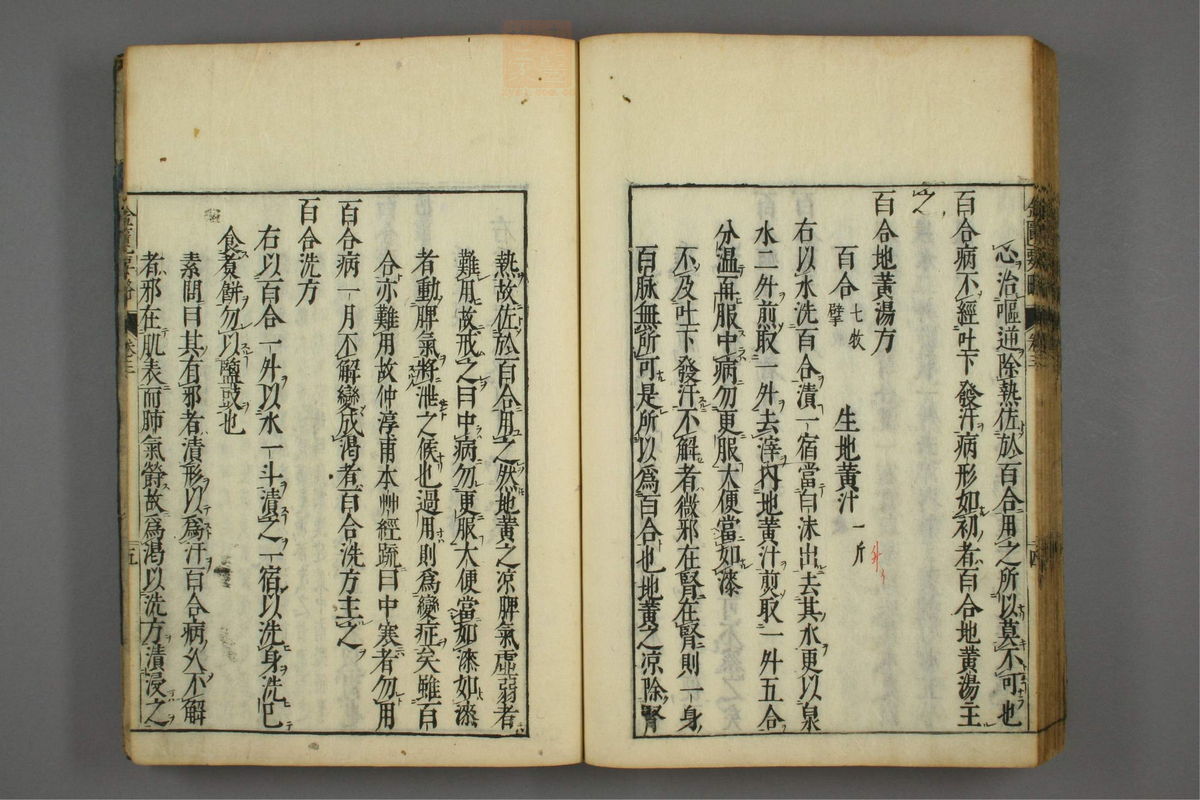 心治嘔逆除熱佐於百合用之所以莫不可也
百合病不經吐下發汗病形如初者百合地黃湯主
之
百合地黃湯方
百合七枚擘 生地黃汁一斤
升
右以水洗百合漬一宿當白沫出去其水更以泉
水二升煎取一升去滓内地黃汁煎取一升五合
分温再服中病勿更服大便當如漆
不及吐下發汗不解者微邪在腎在腎則一身
百脉無所可是所以爲百合也地黃之凉除腎
熱故佐於百合用之然地黃之凉脾氣虛弱者
難用故戒之曰中病勿更服大便當如漆如漆
者動脾氣將泄之候也過用則爲變症矣雖百
合亦難用故仲淳甫本艸經疏曰中寒者勿用
百合病一月不解變成渴者百合洗方主之
百合洗方
右以百合一升以水一斗漬之一宿以洗身洗已
食煮餅勿以鹽豉也
素問曰其有邪者漬形以爲汗百合病久不解
者邪在肌表而肺氣欝故爲渴以洗方漬浸之
金匱要略 卷三 五